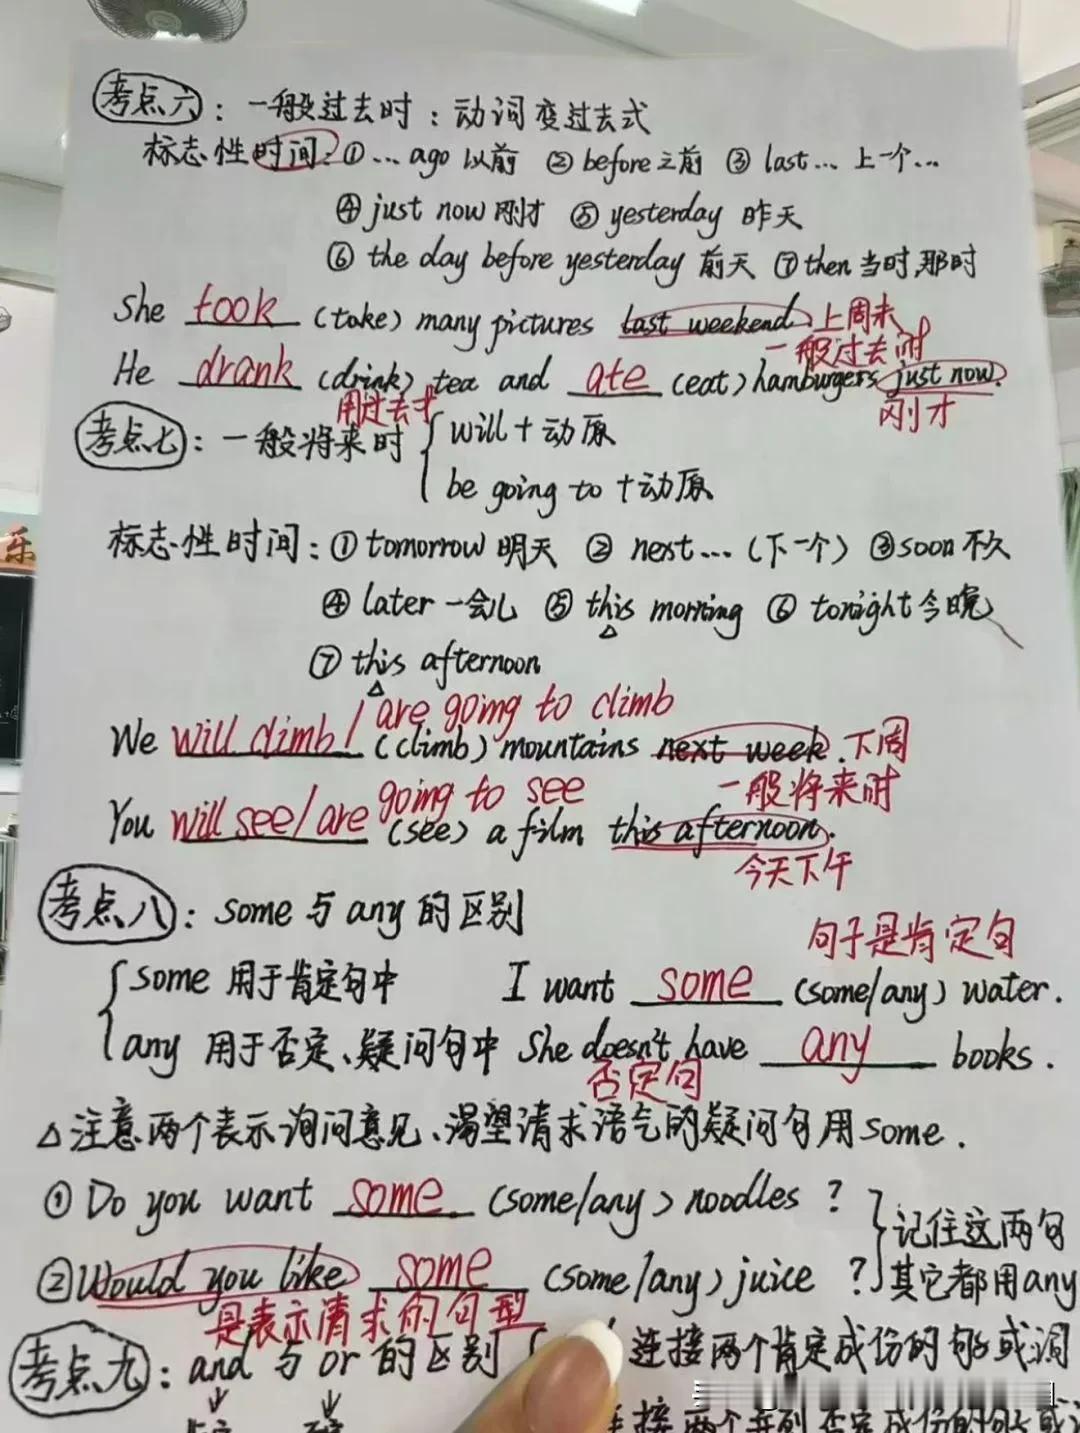 考点六：一般过去时：动词变过去式
标志性时间：① ... ago 以前 ② before 之前 ③ last... 上一个...
④ just now 刚才 ⑤ yesterday 昨天
⑥ the day before yesterday 前天 ⑦ then 当时,那时
She took (take) many pictures last weekend. 上周末
一般过去时
He drank (drink) tea and ate (eat) hamburgers just now.
用过去才
刚才
考点七：一般将来时 { will + 动原
be going to + 动原
标志性时间：① tomorrow 明天 ② next... (下一个) ③ soon 不久
④ later 一会儿 ⑤ this morning ⑥ tonight 今晚
⑦ this afternoon
are going to climb
We will climb / (climb) mountains next week. 下周
going to see 一般将来时
You will see/are (see) a film this afternoon.
今天下午
考点八：some 与 any 的区别
句子是肯定句
some 用于肯定句中 I want some (some/any) water.
any 用于否定、疑问句中 She doesn't have any books.
否定句
△注意两个表示询问意见、渴望请求语气的疑问句用some.
① Do you want some (some/any) noodles ?
记住这两句
② Would you like some (some/any) juice ? 其它都用any
是表示请求的句型
考点九：and 与 or 的区别 连接两个肯定成份的句子或词
连接两个并列否定成份的句子或